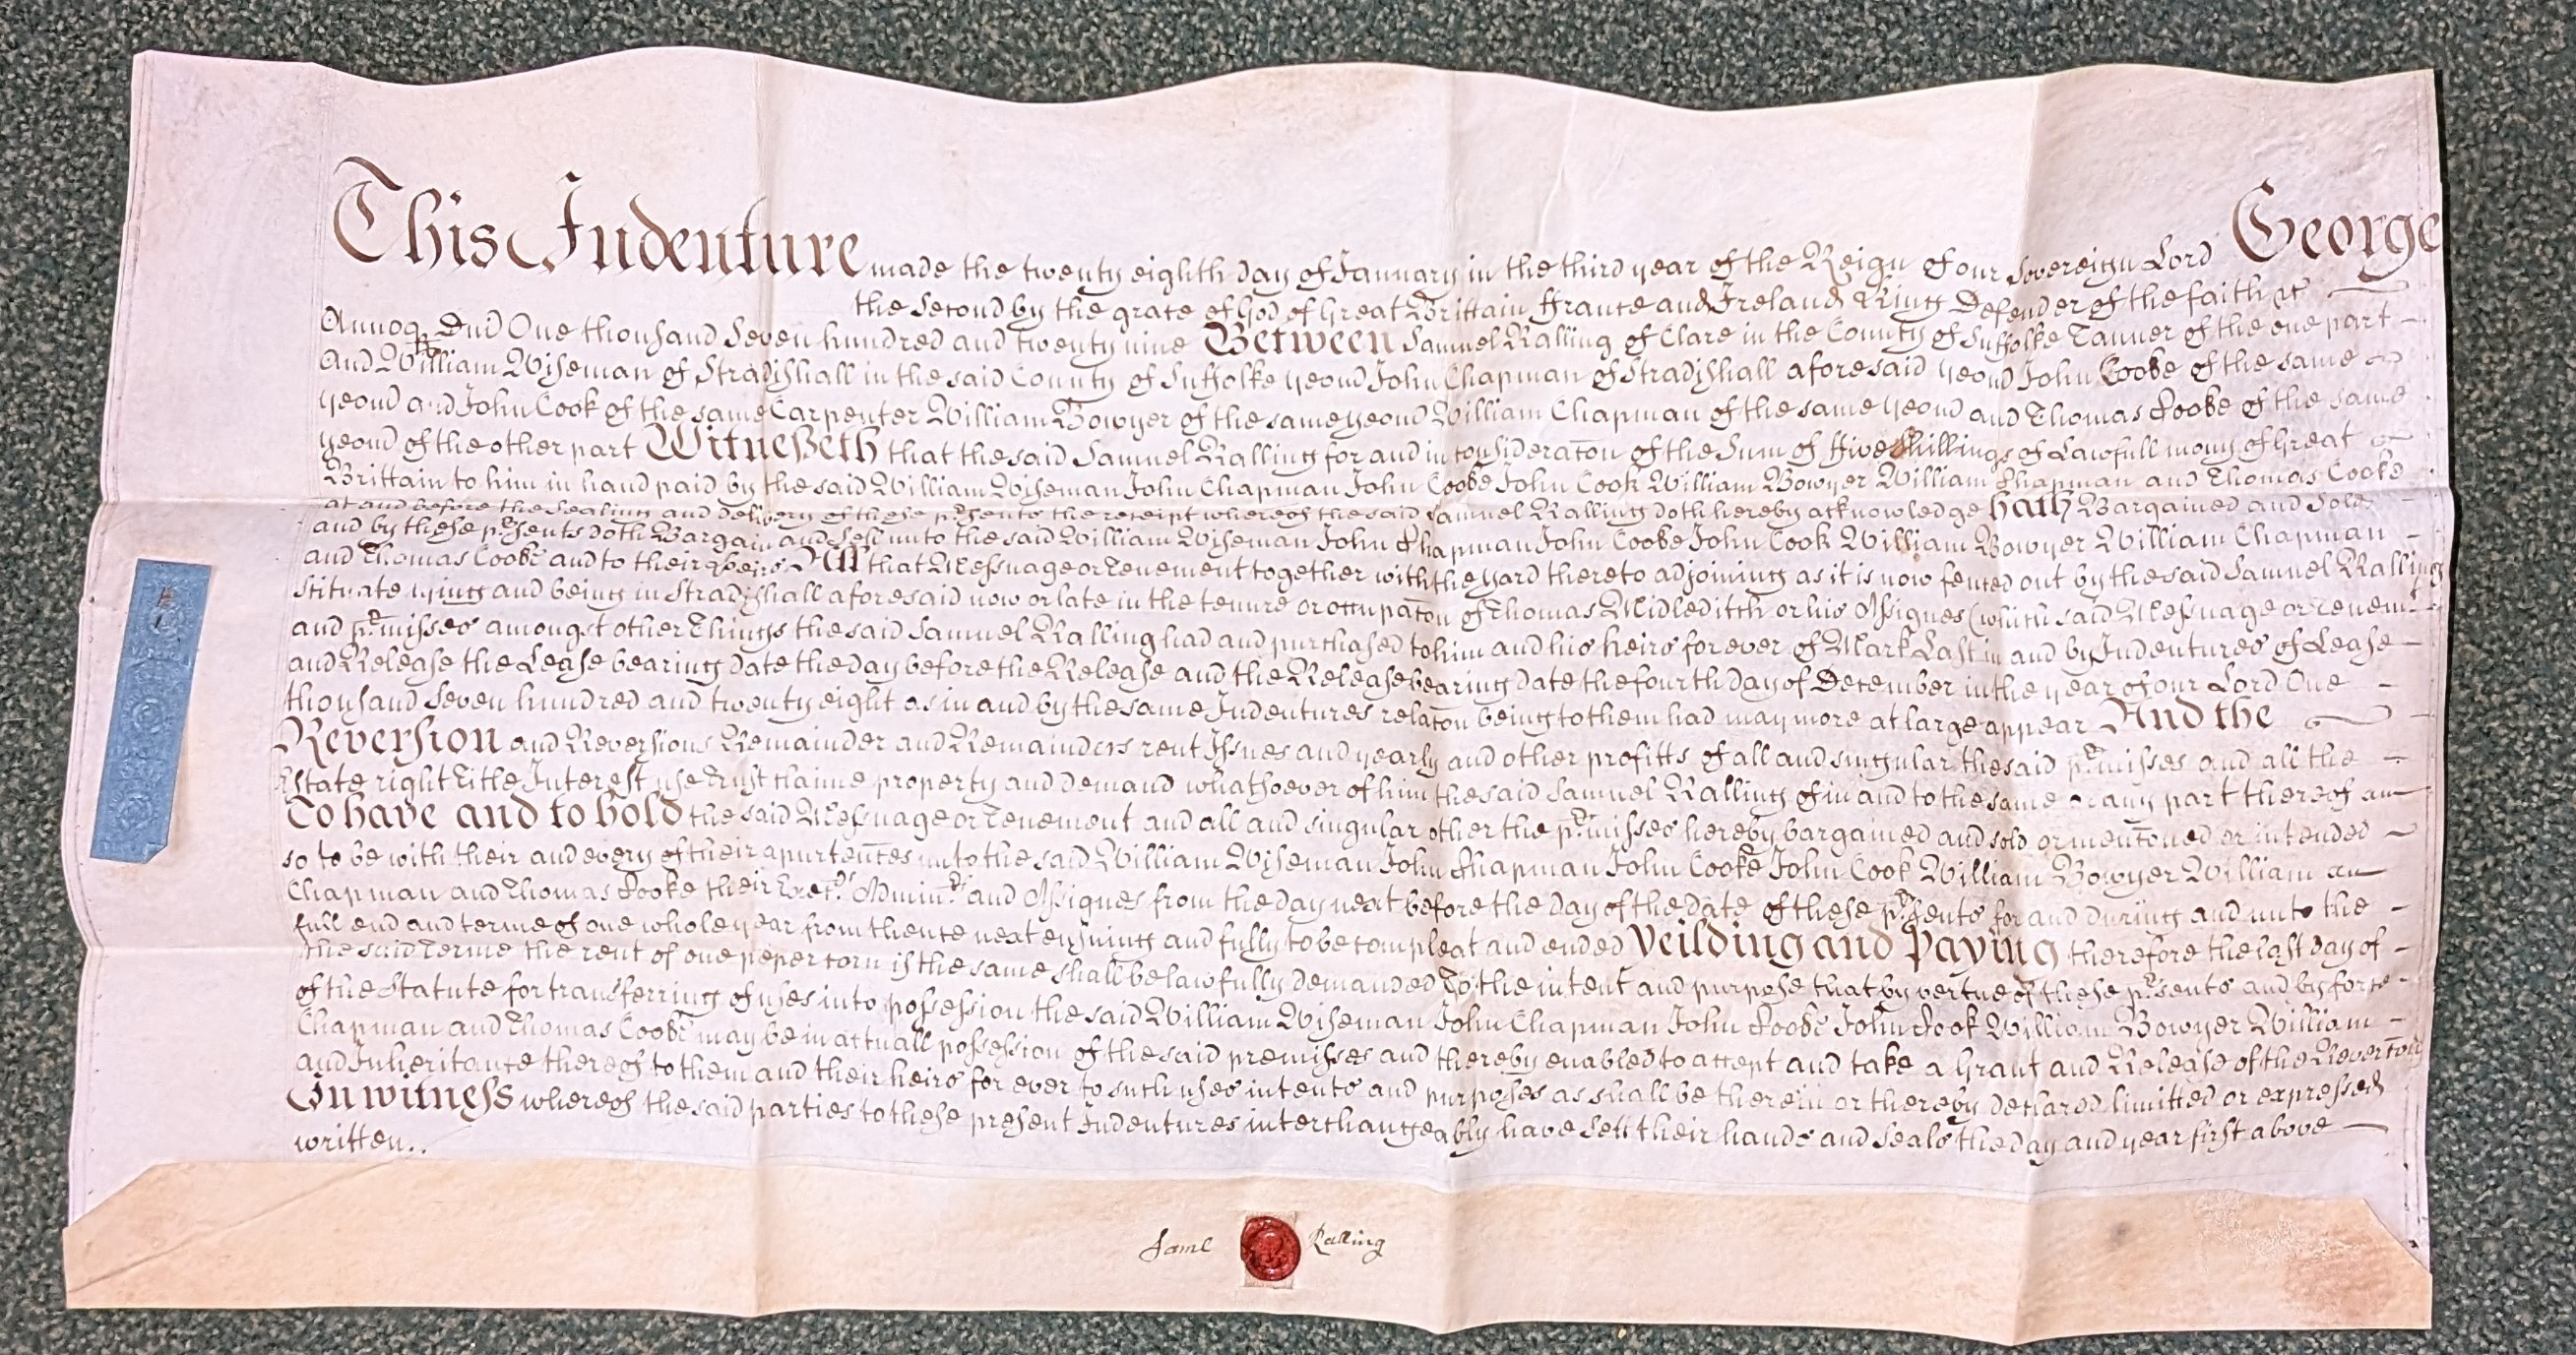 This Indenture made the twenty eighth day of January in the third year of the Reign of our Sovereign Lord George
the Second by the grace of God of Great Brittain ffrance and Ireland King Defender of the faith &c
Annoq Dnd One thousand Seven hundred and twenty nine Between Samuel Ralling of Clare in the County of Suffolke Tanner of the one part
And William Wiseman of Stradishall in the said County of Suffolke yeom John Chapman of Stradishall aforesaid yeom John Cooke of the same
yeom and John Cook of the same Carpenter William Bowyer of the same yeom William Chapman of the same yeom and Thomas Cooke of the same
yeom of the other part Witnesseth that the said Samuel Ralling for and in consideracon of the Sum of ffive Shillings of Lawfull mony of Great
Brittain to him in hand paid by the said William Wiseman John Chapman John Cooke John Cook William Bowyer William Chapman and Thomas Cooke
at and before the Sealing and delivery of these psents the receipt whereof the said Samuel Ralling doth hereby acknowledge hath Bargained and Sold
and by these psents doth Bargain and Sell unto the said William Wiseman John Chapman John Cooke John Cook William Bowyer William Chapman
and Thomas Cooke and to their heirs All that Messuage or Tenement together with the yard thereto adjoining as it is now fenced out by the said Samuel Ralling
Scituate lying and being in Stradishall aforesaid now or late in the tenure or occupacon of Thomas Midleditch or his Assignes (which said Messuage or tenemt
and pmisses amongst other Things the said Samuel Ralling had and purchased to him and his heirs for ever of Mark Last in and by Indentures of Lease
and Release the Lease bearing date the day before the Release and the Release bearing date the fourth day of December in the year of our Lord One
thousand Seven hundred and twenty eight as in and by the same Indentures relacon being to them had may more at large appear And the
Reversion and Reversions Remainder and Remainders rent Issues and yearly and other profitts of all and singular the said pmisses and all the
Estate right title Interest use trust claime property and demand whatsoever of him the said Samuel Ralling of in and to the same or any part thereof
To have and to hold the said Messuage or Tenement and all and singular other the pmisses hereby bargained and sold or menconed or intended
so to be with their and every of their apurtences unto the said William Wiseman John Chapman John Cooke John Cook William Bowyer William
Chapman and Thomas Cooke their Exrs Adminrs and Assignes from the day next before the day of the date of these psents for and during and unto the
full end and terme of one whole year from thence next ensuing and fully to be compleat and ended Yeilding and Paying therefore the last day of
the said Terme the rent of one peper corn if the same shall be lawfully demanded To the intent and purpose that by vertue of these psents and by force
of the Statute for transferring of uses into possession the said William Wiseman John Chapman John Cooke John Cook William Bowyer William
Chapman and Thomas Cooke may be in actuall possession of the said premisses and thereby enabled to accept and take a Grant and Release of the Revercon
and Inheritance thereof to them and their heirs for ever to such uses intents and purposes as shall be therein or thereby declared limitted or expressed
In witness whereof the said parties to these present Indentures interchangeably have sett their hands and seals the day and year first above
written..
Saml Ralling